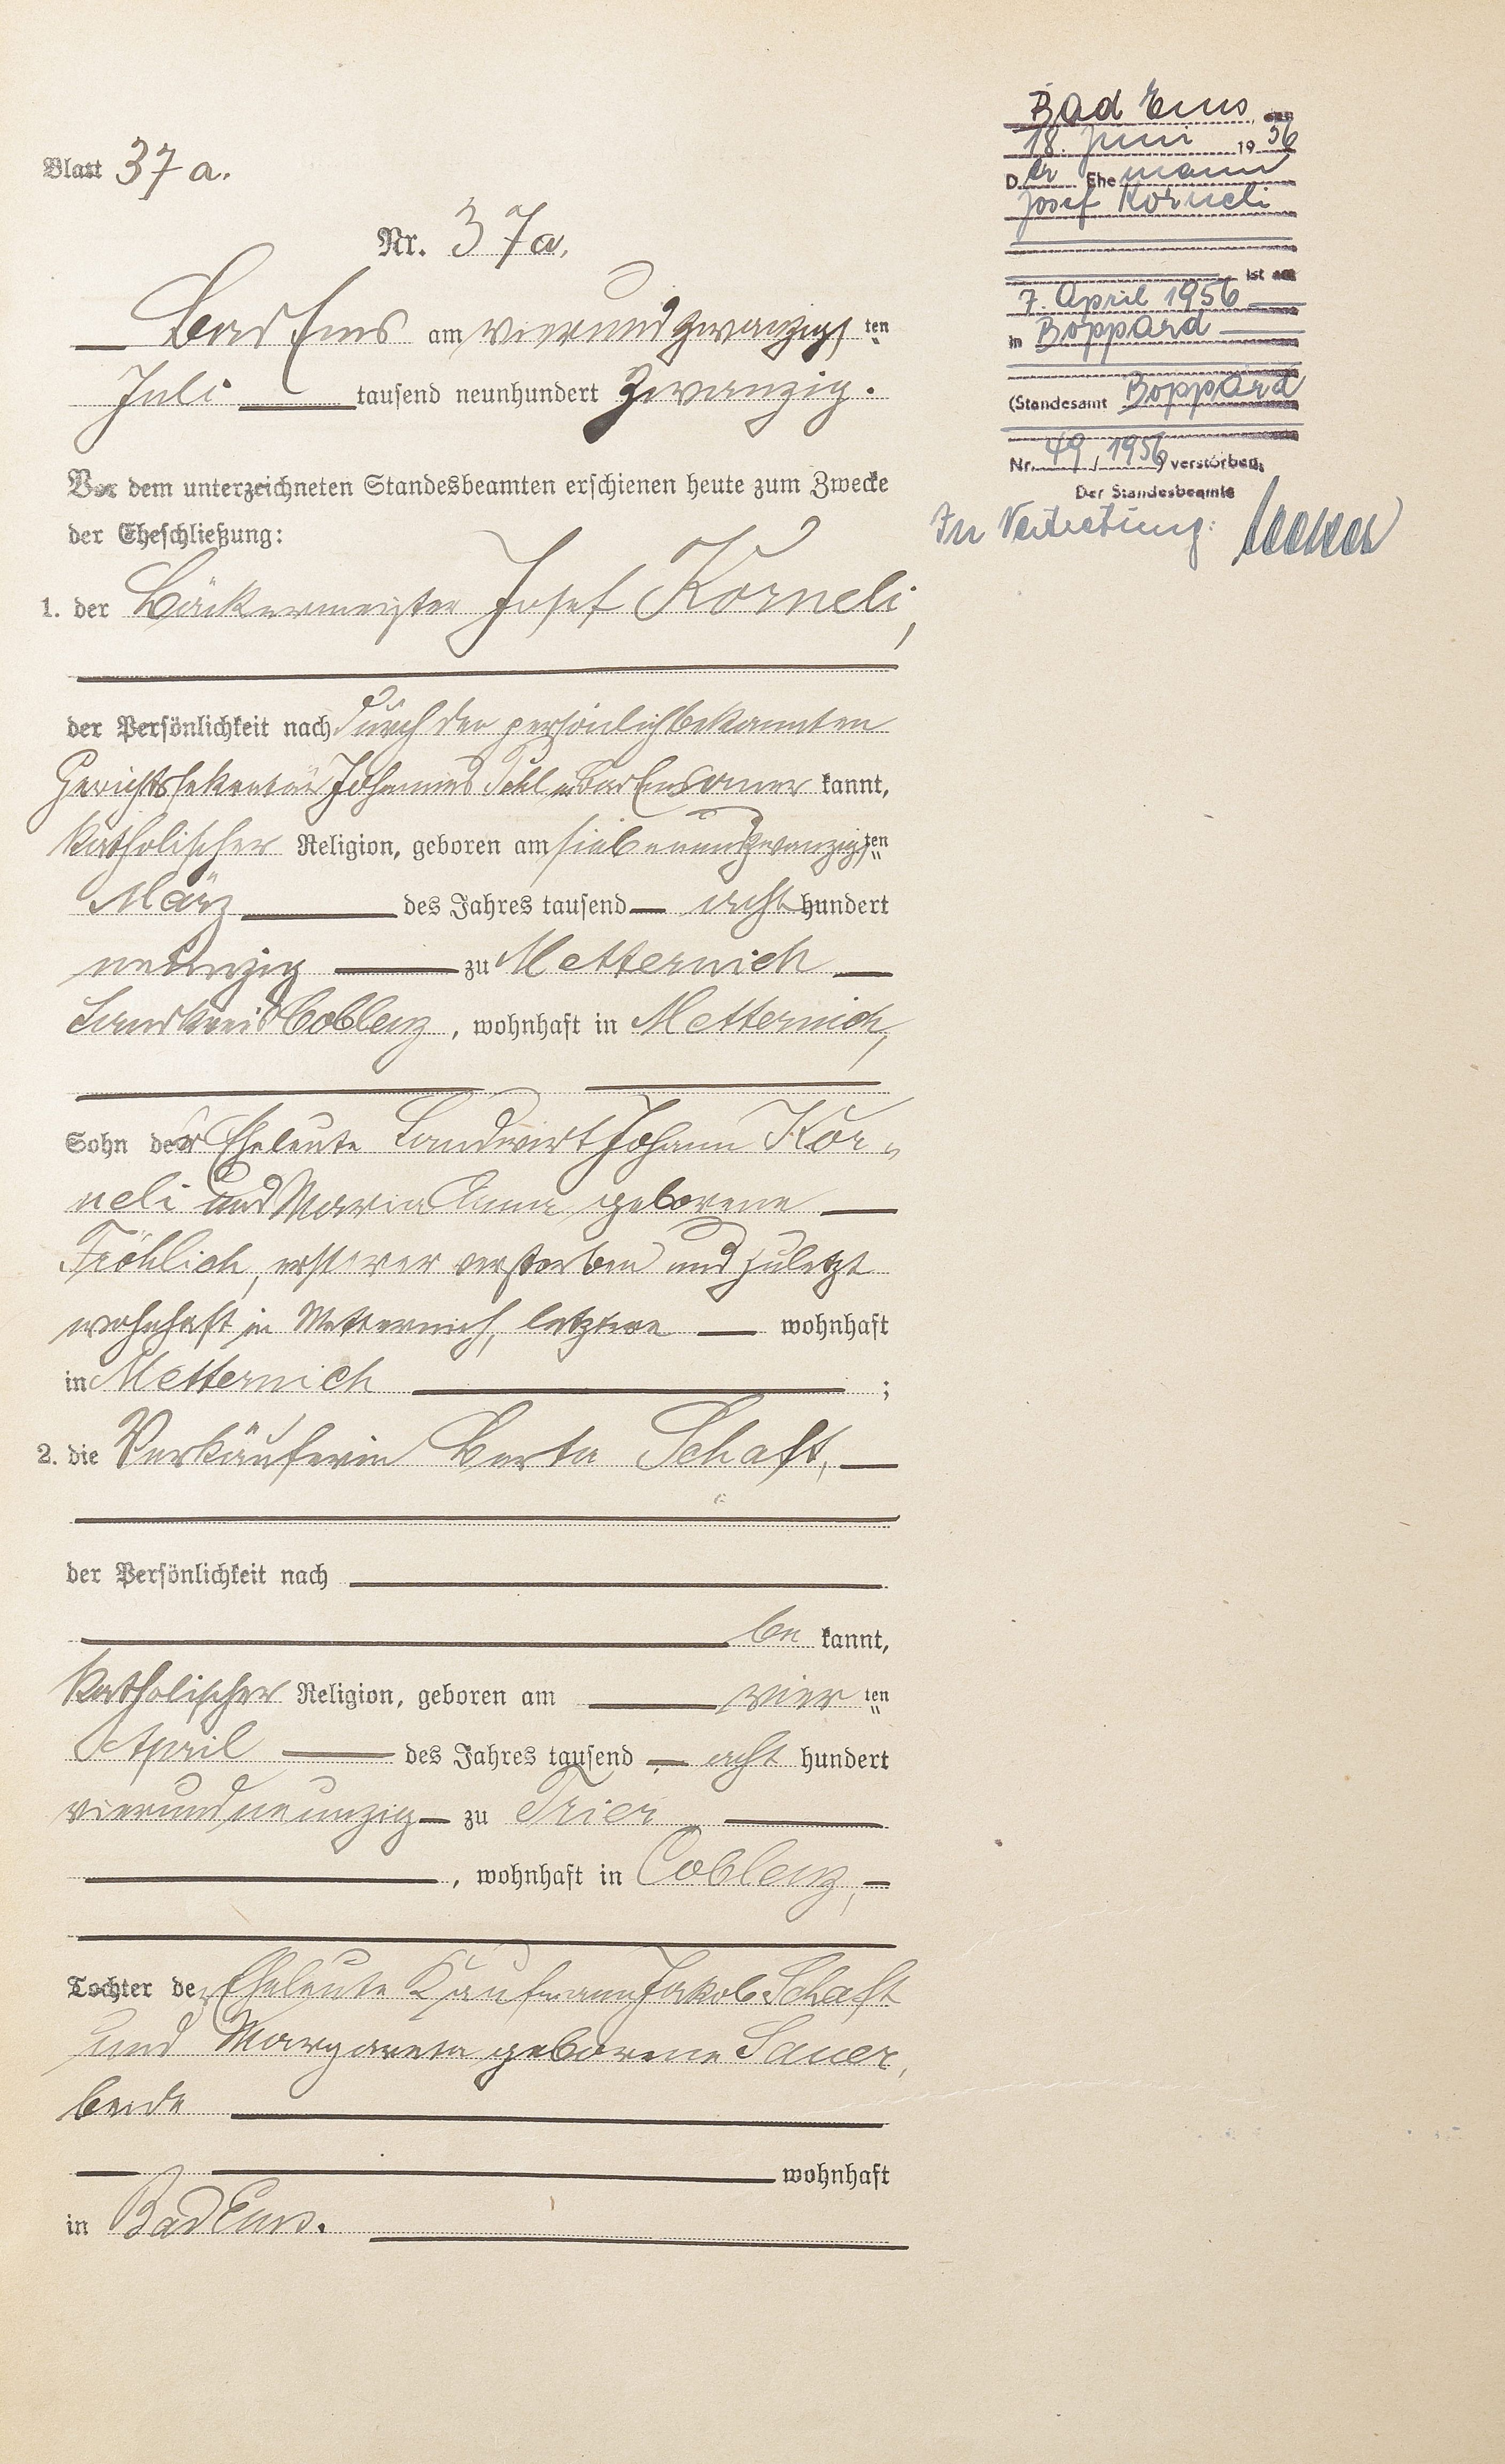 Blatt 37a.
Nr. 37a.
Bad Ems am vierundzwanzigsten
Juli tausend neunhundert zwanzig.
Vor dem unterzeichneten Standesbeamten erschienen heute zum Zwecke
der Eheschließung:
1. der Bäckermeister Josef Korneli,
der Persönlichkeit nach durch den persönlich bekannten
Gerichtssekretär Johannes Bad Ems aner kannt,
katholischer Religion, geboren am siebenundzwanzigsten
März des Jahres tausend acht hundert
neunzig zu Metternich
Landkreis Coblenz, wohnhaft in Metternich,
Sohn der Eheleute Landwirt Johann Kor-
neli und Maria Anna geborene
Fröhlich, ersterer verstorben und zuletzt
wohnhaft in Metternich, letztere wohnhaft
in Metternich ;
2. die Verkäuferin Berta Schaft,
der Persönlichkeit nach
be kannt,
katholischer Religion, geboren am vier ten
April des Jahres tausend acht hundert
vierundneunzig zu Trier
, wohnhaft in Coblenz,
Tochter der Eheleute Kaufmann Jakob Schaft
und Margareta geborene Sauer,
beide
wohnhaft
in Bad Ems.
Bad Ems, den
18. Juni 1956
Der Ehemann
Josef Korneli
ist am
7. April 1956
in Boppard
(Standesamt Boppard
Nr. 49/1956) verstorben.
Der Standesbeamte
In Vertretung: